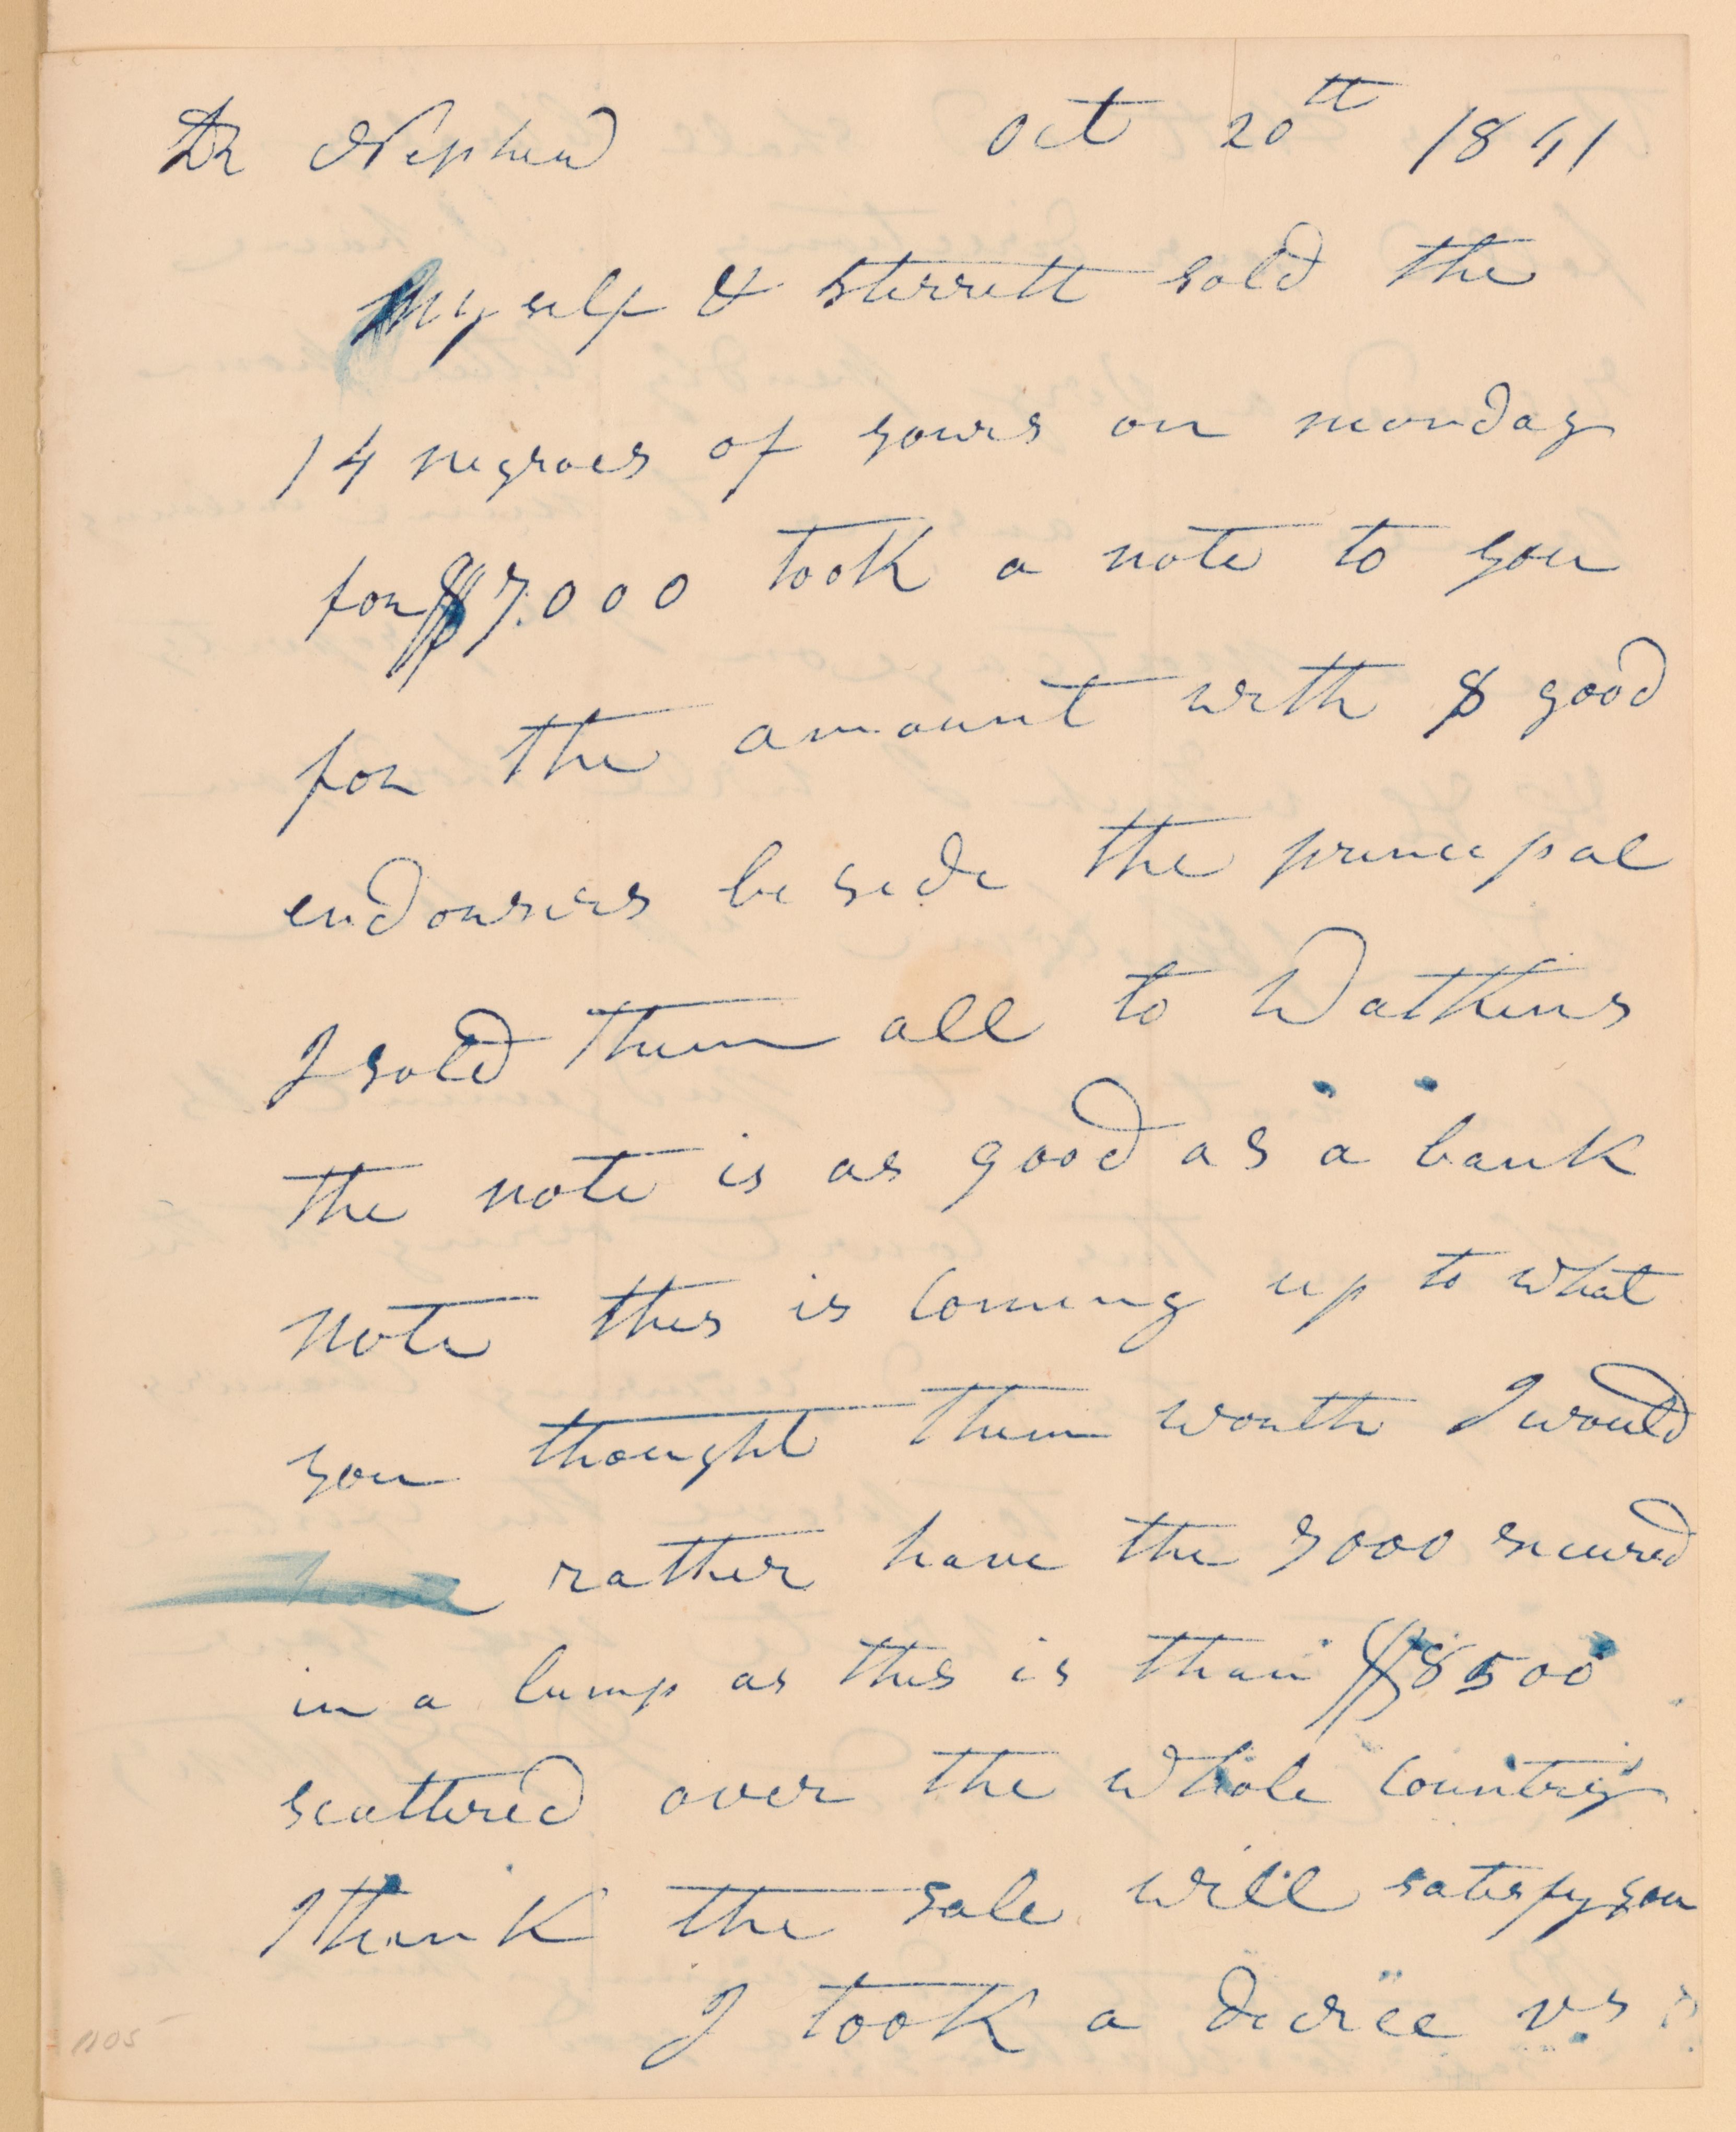 Dr Nephew Oct 20th 1841
Myself & Sterrett sold the
14 negroes of yours on monday
for $7.000 took a note to you
for the amount with 8 good
endorsers be side the principal
I sold them all to Watkins
the note is as good as a bank
note this is coming up to what
you thought them worth I would
have rather have the 7000 secured
in a lump as this is than $8500
scattered over the whole country
I think the sale will satisfy you
I took a decree vs
1105